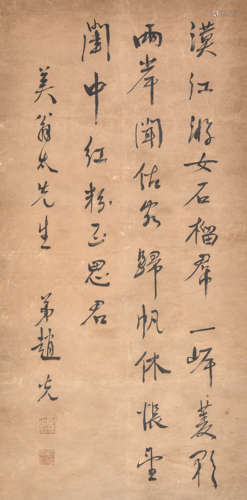 漢江游女石榴羣一菱歌
兩岸聞估客歸帆休悵望
閨中紅粉正思君
美翁太先生 弟趙光